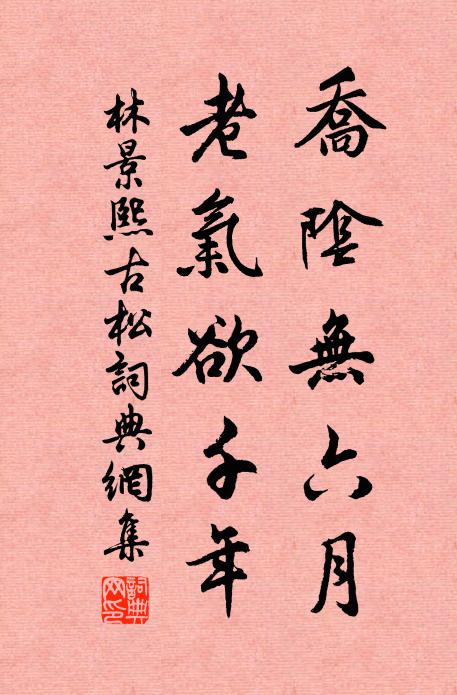 喬陰無六月
老氣欲千年
林景熙古松詞典網集
詞典網印